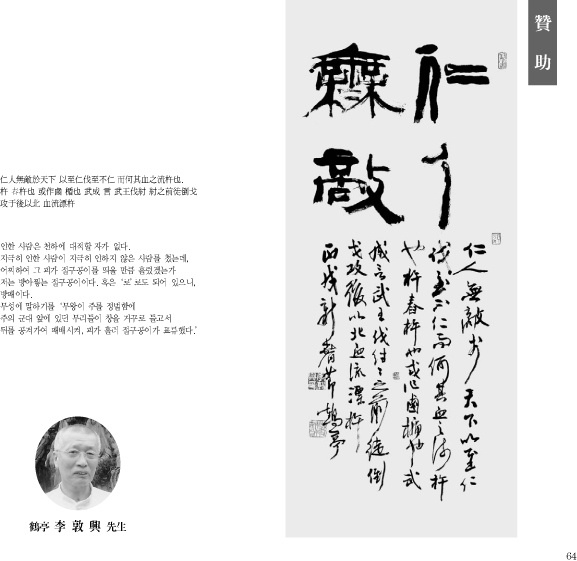 贊助
仁人
無敵
仁人無敵於天下以至仁
伐至不仁而何其血之流杵
也 杵舂杵也或作鹵楯也武
成言武王伐紂紂之前徒倒
戈攻後以北血流漂杵
鶴亭
仁人無敵於天下 以至仁伐至不仁 而何其血之流杵也.
杵 舂杵也 或作鹵 楯也 武成 言 武王伐紂 紂之前徒倒戈
攻于後以北 血流漂杵
인한 사람은 천하에 대적할 자가 없다.
지극히 인한 사람이 지극히 인하지 않은 사람를 쳤는데,
어찌하여 그 피가 절구공이를 띄울 만큼 흘렀겠는가
저는 방아찧는 절구공이이다. 혹은 '로'로도 되어 있으니,
방패이다.
무성에 말하기를 '무왕이 주를 정벌함에
주의 군대 앞에 있던 무리들이 창을 거꾸로 들고서
뒤를 공격하여 패배시켜, 피가 흘러 절구공이가 표류했다.'
鶴亭 李敦興 先生
64